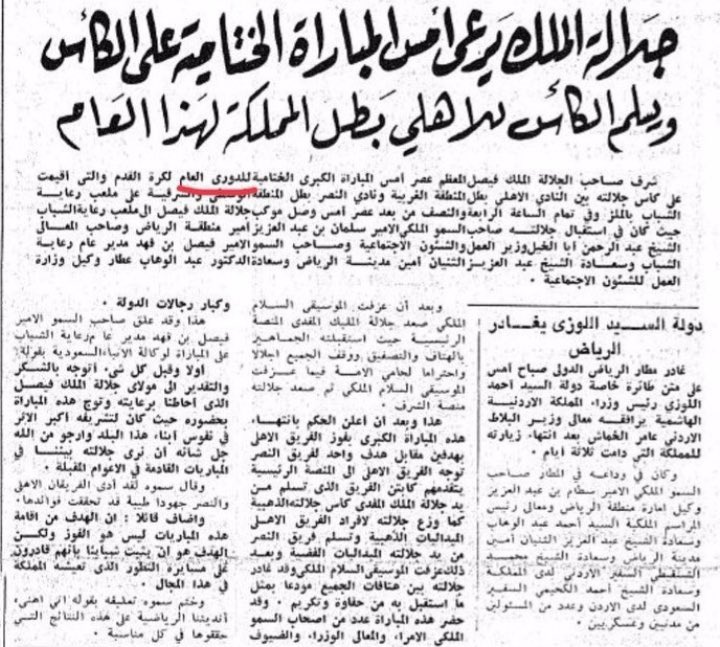 جلالة الملك يرعى أمس المباراة الختامية على الكأس
ويسلم الكأس للأهلي بطل المملكة لهذا العام
شرف صاحب الجلالة الملك فيصل المعظم عصر أمس المباراة الكبرى الختامية للدورى العام لكرة القدم والتى اقيمت
على كأس جلالته بين النادى الاهلى بطل المنطقة الغربية ونادى النصر بطل المنطقة الوسطى والشرقية على ملعب رعاية
الشباب بالملز وفى تمام الساعة الرابعة والنصف من بعد عصر أمس وصل موكب جلالة الملك فيصل الى ملعب رعاية الشباب
حيث كان فى استقبال جلالته صاحب السمو الملكى الامير سلمان بن عبد العزيز أمير منطقة الرياض وصاحب المعالى
الشيخ عبد الرحمن أبا الخيل وزير العمل والشئون الاجتماعية وصاحب السمو الامير فيصل بن فهد مدير عام رعاية
الشباب وسعادة الشيخ عبد العزيز الثنيان أمين مدينة الرياض وسعادة الدكتور عبد الوهاب عطار وكيل وزارة
العمل للشئون الاجتماعية .
وبعد أن عزفت الموسيقى السلام
الملكى صعد جلالة المليك المفدى المنصة
الرئيسية حيث استقبلته الجماهير
بالهتاف والتصفيق ووقف الجميع اجلالا
واحتراما لحامى الامة فيما عزفت
الموسيقى السلام الملكى ثم صعد جلالته
منصة الشرف
هذا وبعد أن اعلن الحكم بانتهاء
هذه المباراة الكبرى بفوز الفريق الاهلى
بهدفين مقابل هدف واحد لفريق النصر
توجه الفريق الاهلى الى المنصة الرئيسية
يتقدمهم كابتن الفريق الذى تسلم من
يد جلالة الملك المفدى كأس جلالته الذهبية
كما وزع جلالته لافراد الفريق الاهلى
الميداليات الذهبية وتسلم فريق النصر
من يد جلالته الميداليات الفضية وبعد
ذلك عزفت الموسيقى السلام الملكى وقد غادر
جلالته بين هتافات الجميع مودعا بمثل
ما استقبل به من حفاوة وتكريم . وقد
حضر هذه المباراة عدد من اصحاب السمو
الملكى الامراء، والمعالى الوزراء والضيوف
وكبار رجالات الدولة .
هذا وقد علق صاحب السمو الامير
فيصل بن فهد مدير عام رعاية الشباب
على المباراة لوكالة الانباء السعودية بقوله:
اولا وقبل كل شىء أتوجه بالشكر
والتقدير الى مولاى جلالة الملك فيصل
الذى أحاطنا برعايته وتوج هذه المباراة
بحضوره حيث كان لتشريفه أكبر الاثر
فى نفوس أبناء هذا البلد وارجو من الله
جل شأنه أن نرى جلالته بيننا فى
المباريات القادمة فى الاعوام المقبلة .
وقال سموه لقد أدى الفريقان الاهلى
والنصر جهودا طيبة قد تحققت فوائدها .
واضاف قائلا : ان الهدف من اقامة
هذه المباريات ليس هو الفوز ولكن
الهدف هو أن يثبت شبابنا بأنهم قادرون
على مسايرة التطور الذى تعيشه المملكة
فى هذا المجال .
وختم سموه تعليقه بقوله انى اهنى
أنديتنا الرياضية على هذه النتائج التى
حققوها فى كل مناسبة .
دولة السيد اللوزى يغادر
الرياض
غادر مطار الرياض الدولى صباح أمس
على متن طائرة خاصة دولة السيد أحمد
اللوزى رئيس وزراء المملكة الاردنية
الهاشمية يرافقه معالى وزير البلاط
الاردنى عامر الخماش بعد انتهاء زيارته
للمملكة التى دامت ثلاثة أيام .
وكان فى وداعه فى المطار صاحب
السمو الملكى الامير سطام بن عبد العزيز
وكيل امارة منطقة الرياض ومعالى رئيس
المراسم الملكية السيد أحمد عبد الوهاب
وسعادة الشيخ عبد العزيز الثنيان أمين
مدينة الرياض وسعادة الشيخ محمد
الشنقيطى السفير الاردنى لدى المملكة
وسعادة الشيخ أحمد الكحيمى السفير
السعودى لدى الاردن وعدد من المسئولين
من مدنيين وعسكريين .